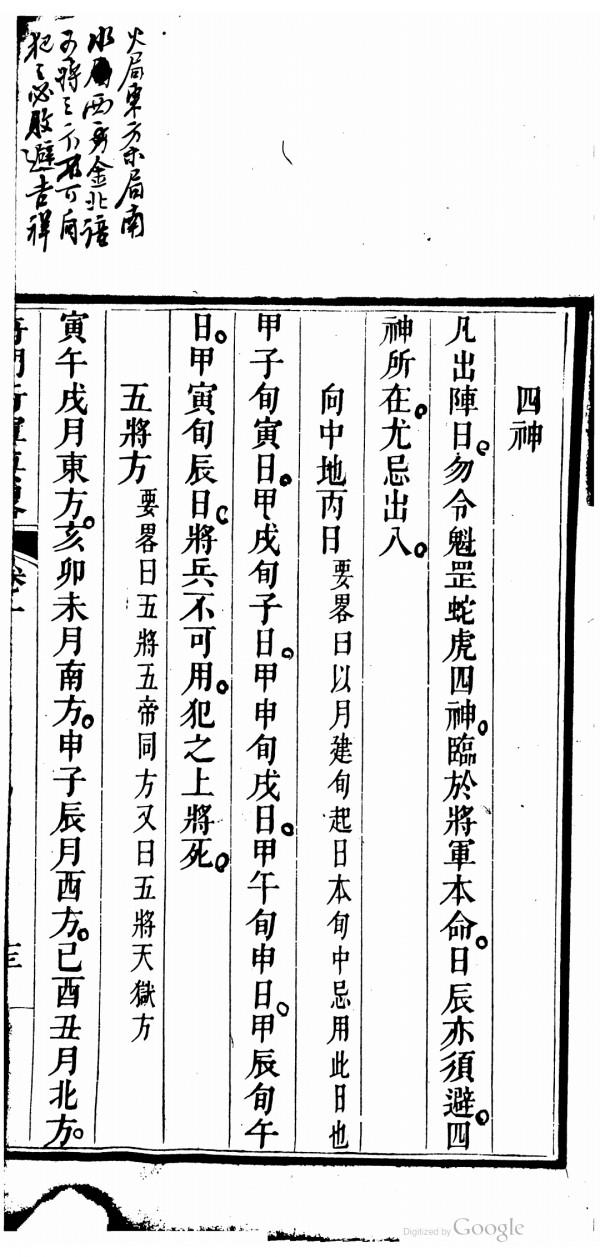 火局東方木局南
水局西方金北諳
五將三方不可向
犯之必敗避吉祥
四神
凡出陣日。勿令魁罡蛇虎四神。臨於將軍本命。日辰亦須避。四
神所在。尤忌出入。
向中地丙日 要畧曰以月建旬起日本旬中忌用此日也
甲子旬寅日。甲戌旬子日。甲申旬戌日。甲午旬申日。甲辰旬午
日。甲寅旬辰日。將兵不可用。犯之上將死。
五將方 要畧曰五將五帝同方又曰五將天獄方
寅午戌月東方。亥卯未月南方。申子辰月西方。巳酉丑月北方。
三
Digitized by Google